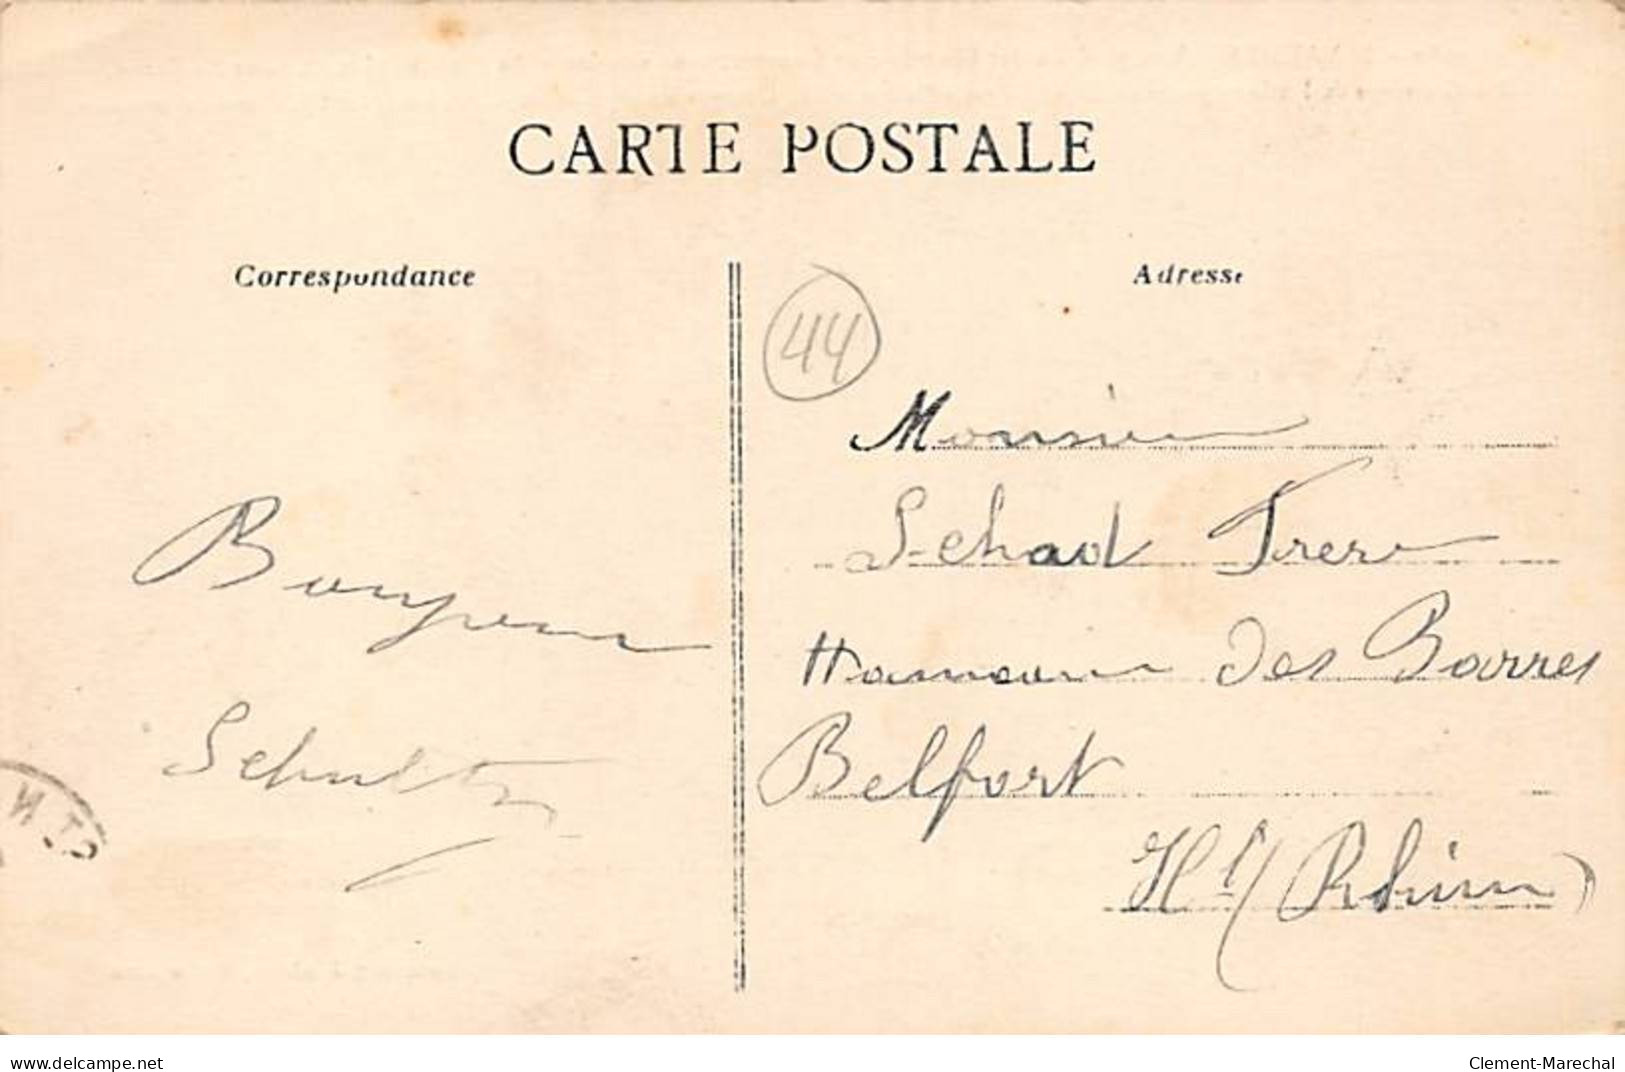 CARTE POSTALE
Correspondance
Adresse
44
Monsieur
Schad Frere
Hameau des Barres
Belfort
Ht/Rhin)
Bonjour
Schultz
www.delcampe.net
Clement-Marechal